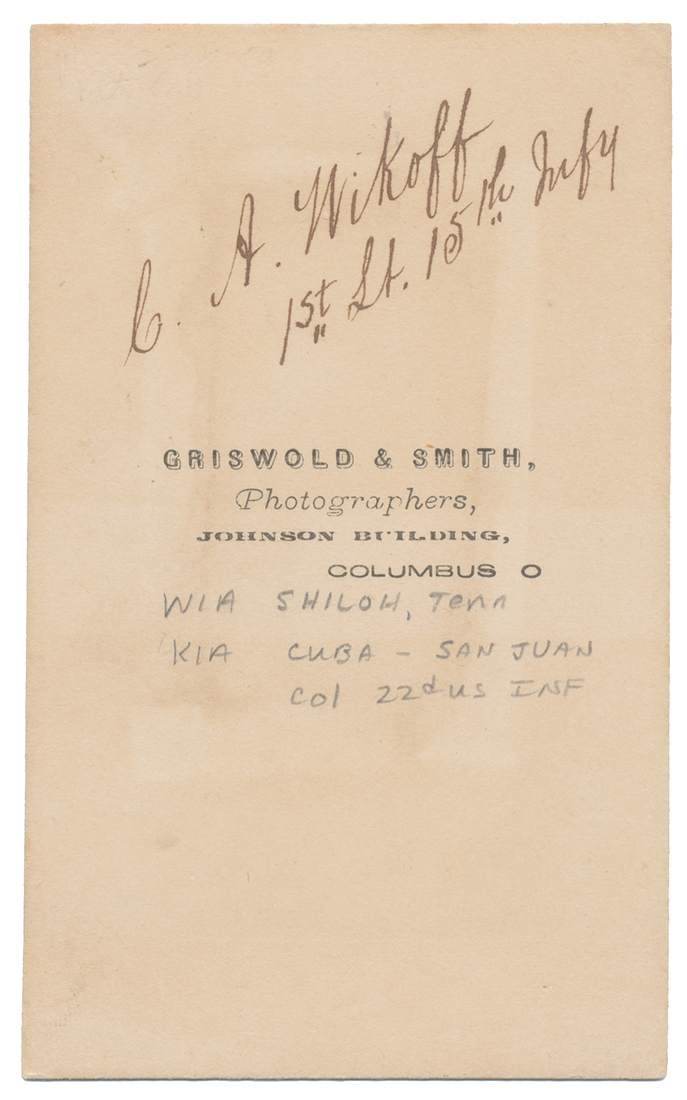 C. A. Wikoff
1st Lt. 15th Infy
GRISWOLD & SMITH,
Photographers,
JOHNSON BUILDING,
COLUMBUS O
WIA SHILOH, Tenn
KIA CUBA - SAN JUAN
Col 22d US INF